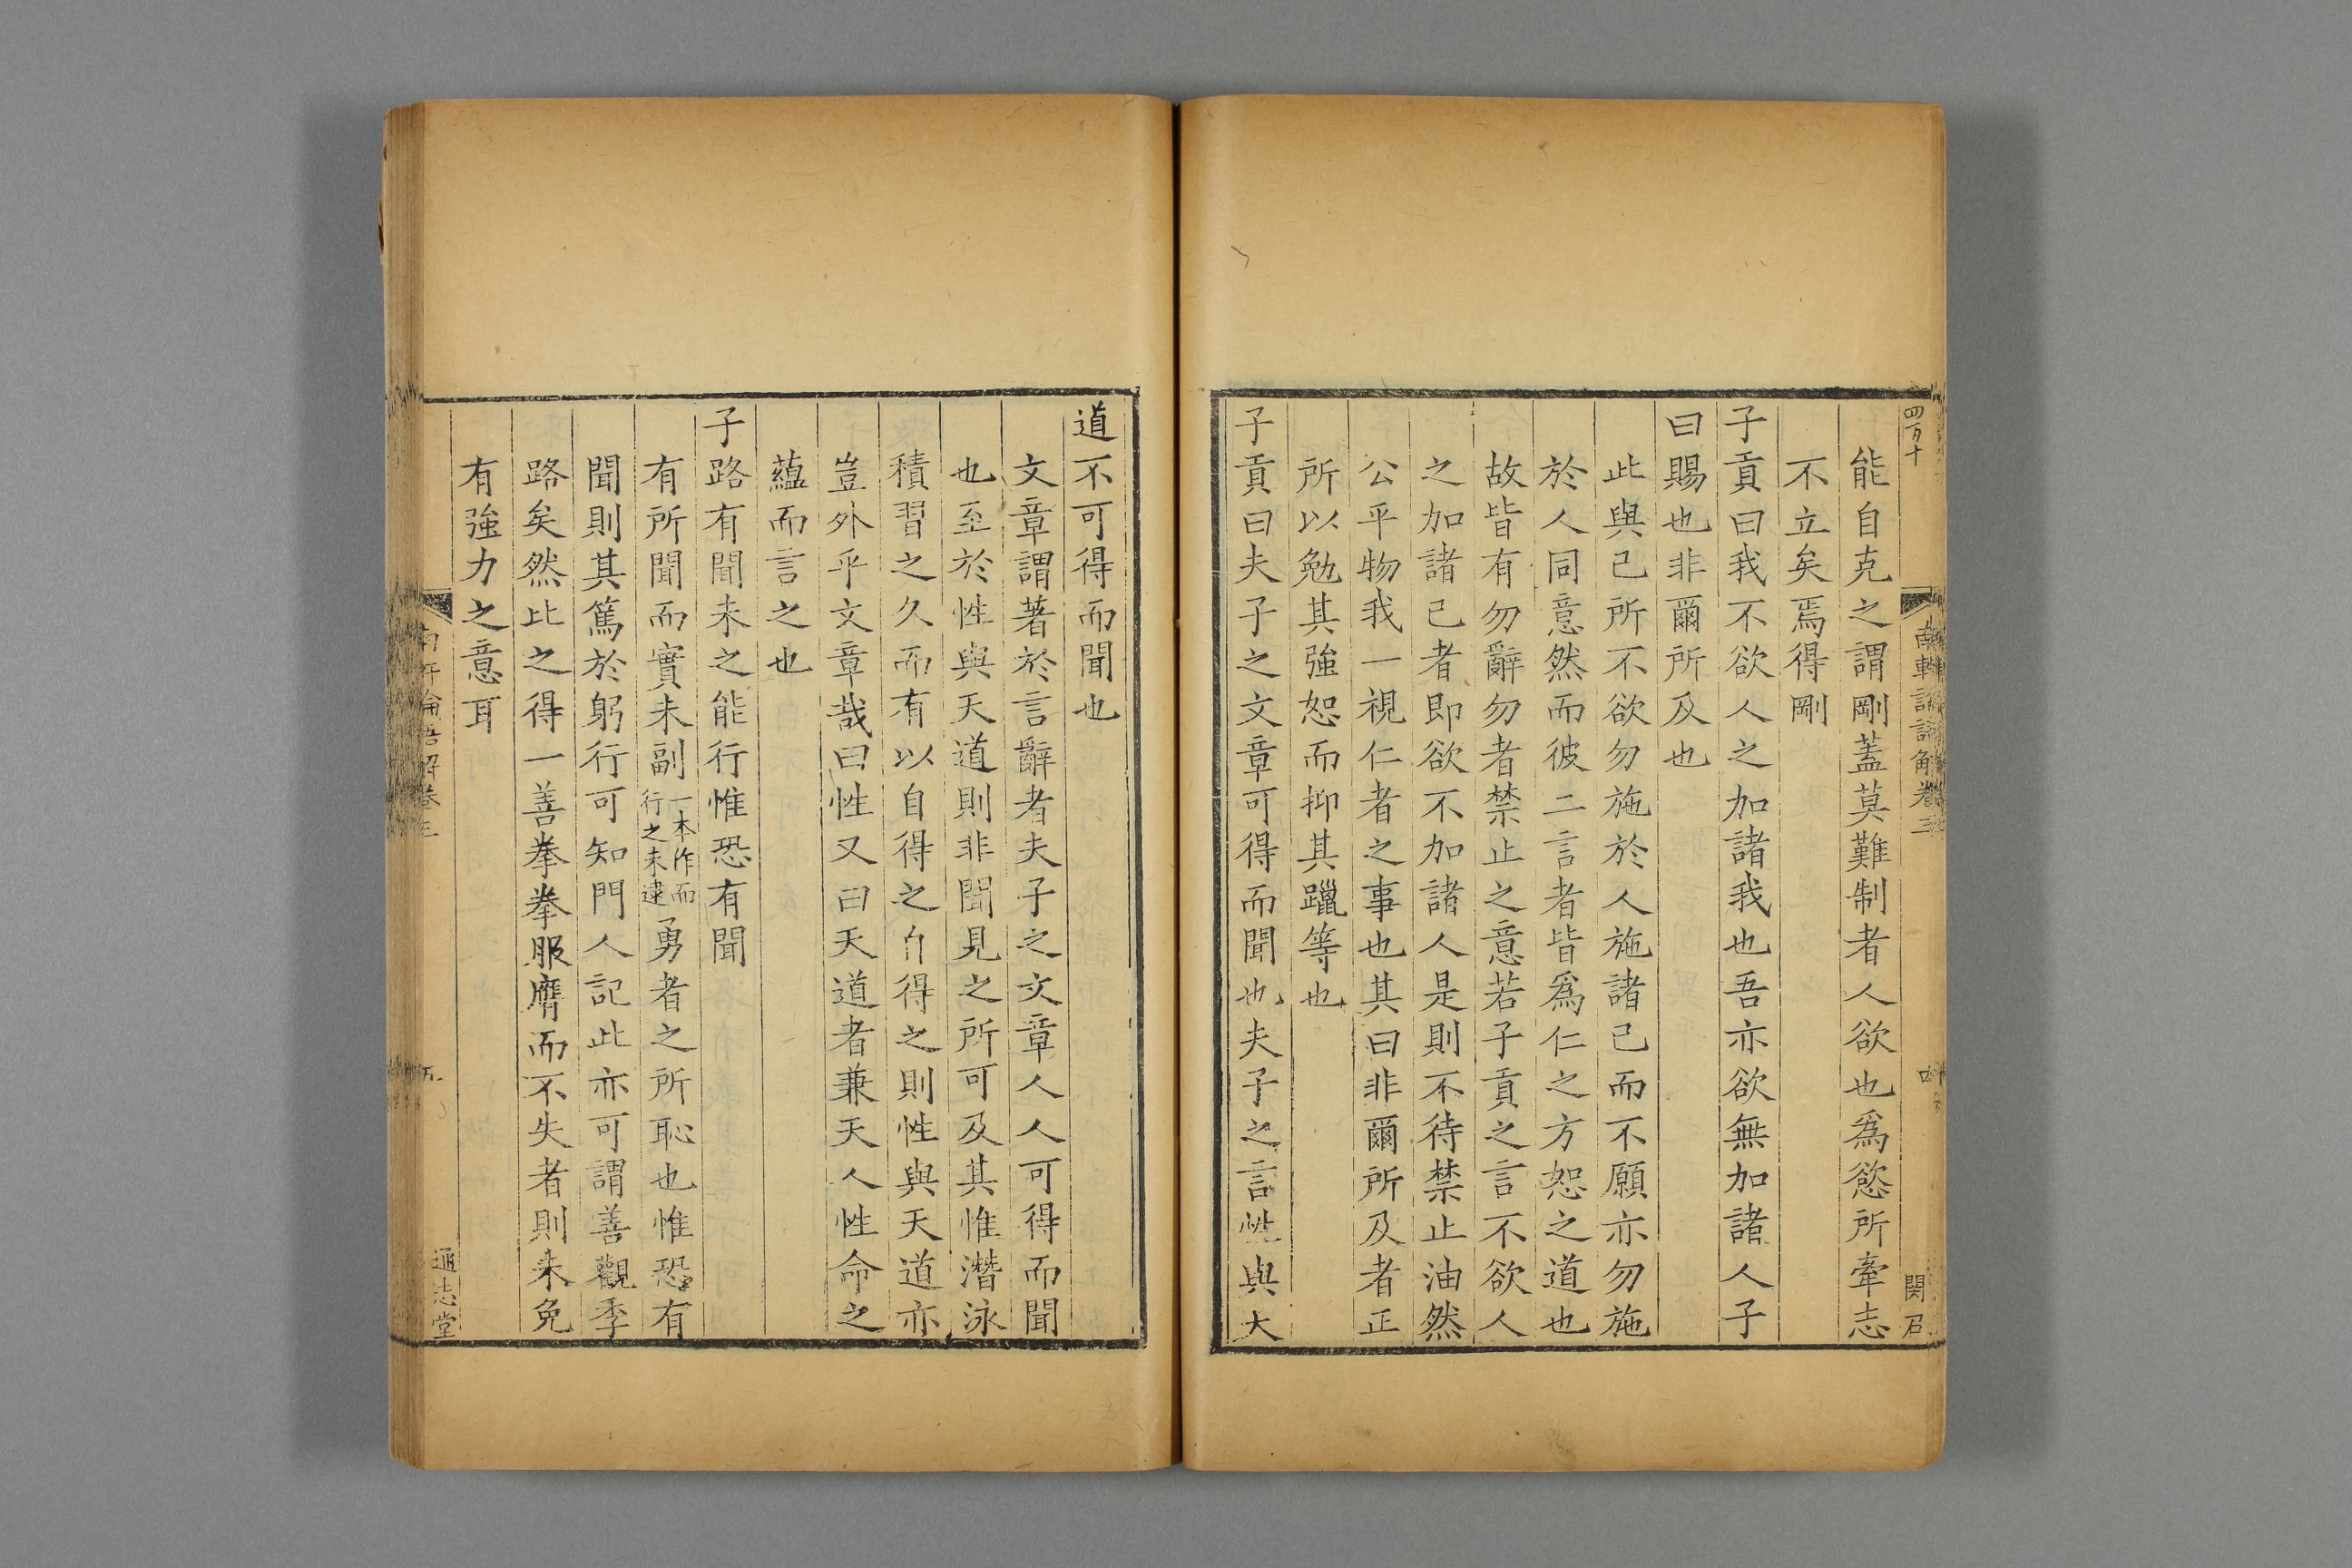 四百十
南軒論語解卷三
四
関石
能自克之謂剛蓋莫難制者人欲也爲慾所牽志
不立矣焉得剛
子貢曰我不欲人之加諸我也吾亦欲無加諸人子
曰賜也非爾所及也
此與己所不欲勿施於人施諸己而不願亦勿施
於人同意然而彼二言者皆爲仁之方恕之道也
故皆有勿辭勿者禁止之意若子貢之言不欲人
之加諸己者即欲不加諸人是則不待禁止油然
公平物我一視仁者之事也其曰非爾所及者正
所以勉其強恕而抑其躐等也
子貢曰夫子之文章可得而聞也夫子之言性與大
道不可得而聞也
文章謂著於言辭者夫子之文章人人可得而聞
也至於性與天道則非聞見之所可及其惟潛泳
積習之久而有以自得之自得之則性與天道亦
豈外乎文章哉曰性又曰天道者兼天人性命之
蘊而言之也
子路有聞未之能行惟恐有聞
有所聞而實未副一本作而行之未逮勇者之所恥也惟恐有
聞則其篤於躬行可知門人記此亦可謂善觀季
路矣然比之得一善拳拳服膺而不失者則未免
有強力之意耳
南軒論語解卷三
五
通志堂